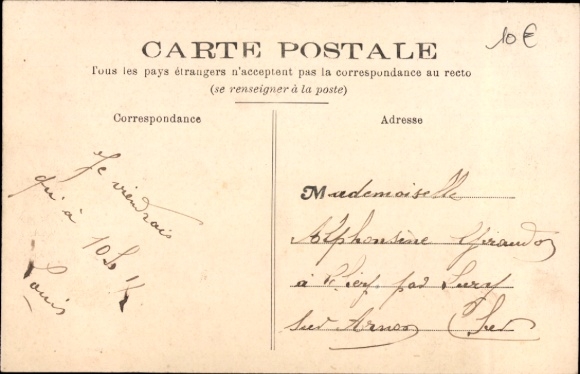 10 €
CARTE POSTALE
Tous les pays étrangers n'acceptent pas la correspondance au recto
(se renseigner à la poste)
Correspondance
Adresse
Je viendrais
qu'à 10h ½
Louis
Mademoiselle
Alphonsine
à par Lury
sur Arnon Cher